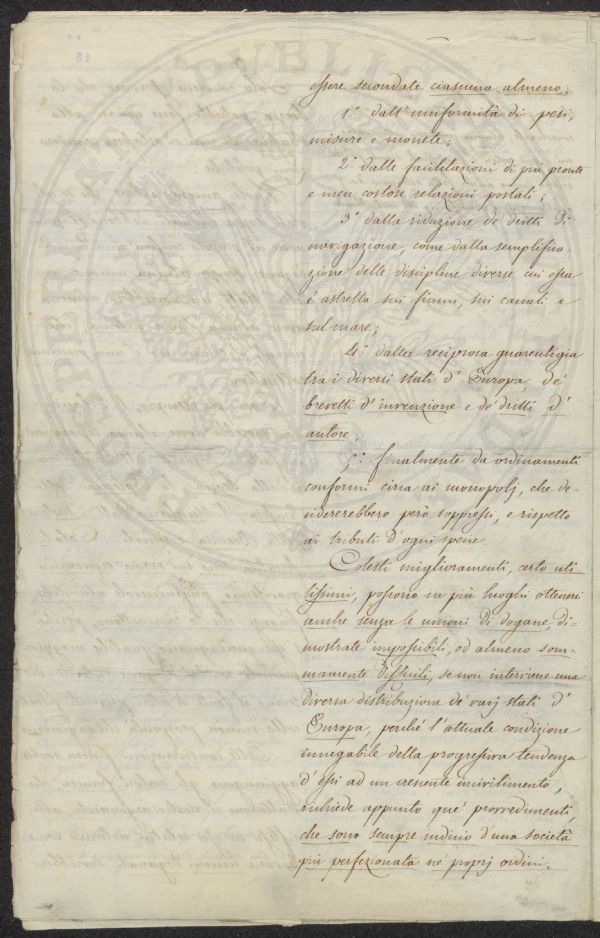 essere secondate ciascuna almeno;
1° dall'uniformità di pesi,
misure e monete;
2° dalle facilitazioni di più pronte
e men costose relazioni postali;
3° dalla riduzione de' dritti di
navigazione, come dalla semplifica
zione delle discipline diverse cui essa
è astretta sui fiumi, sui canali e
sul mare;
4° dalla reciproca guarentigia
tra i diversi stati d'Europa, de'
brevetti d'invenzione e de' dritti d'
autore;
5°: finalmente da ordinamenti
conformi circa ai monopolj, che de
sidererebbero però soppressi, e rispetto
ai tributi d'ogni specie.
Cotesti miglioramenti, certo uti
lissimi, possono in più luoghi ottenersi
anche senza le unioni di dogane, di=
mostrate impossibili, od almeno som=
mamente difficili, se non interviene una
diversa distribuzione de' varj stati d'
Europa, perché l'attuale condizione
innegabile della progressiva tendenza
d'essi ad un crescente incivilimento,
richiede appunto que' provvedimenti,
che sono sempre indizio d'una società
più perfezionata ne' proprj ordini.
PUBLIC